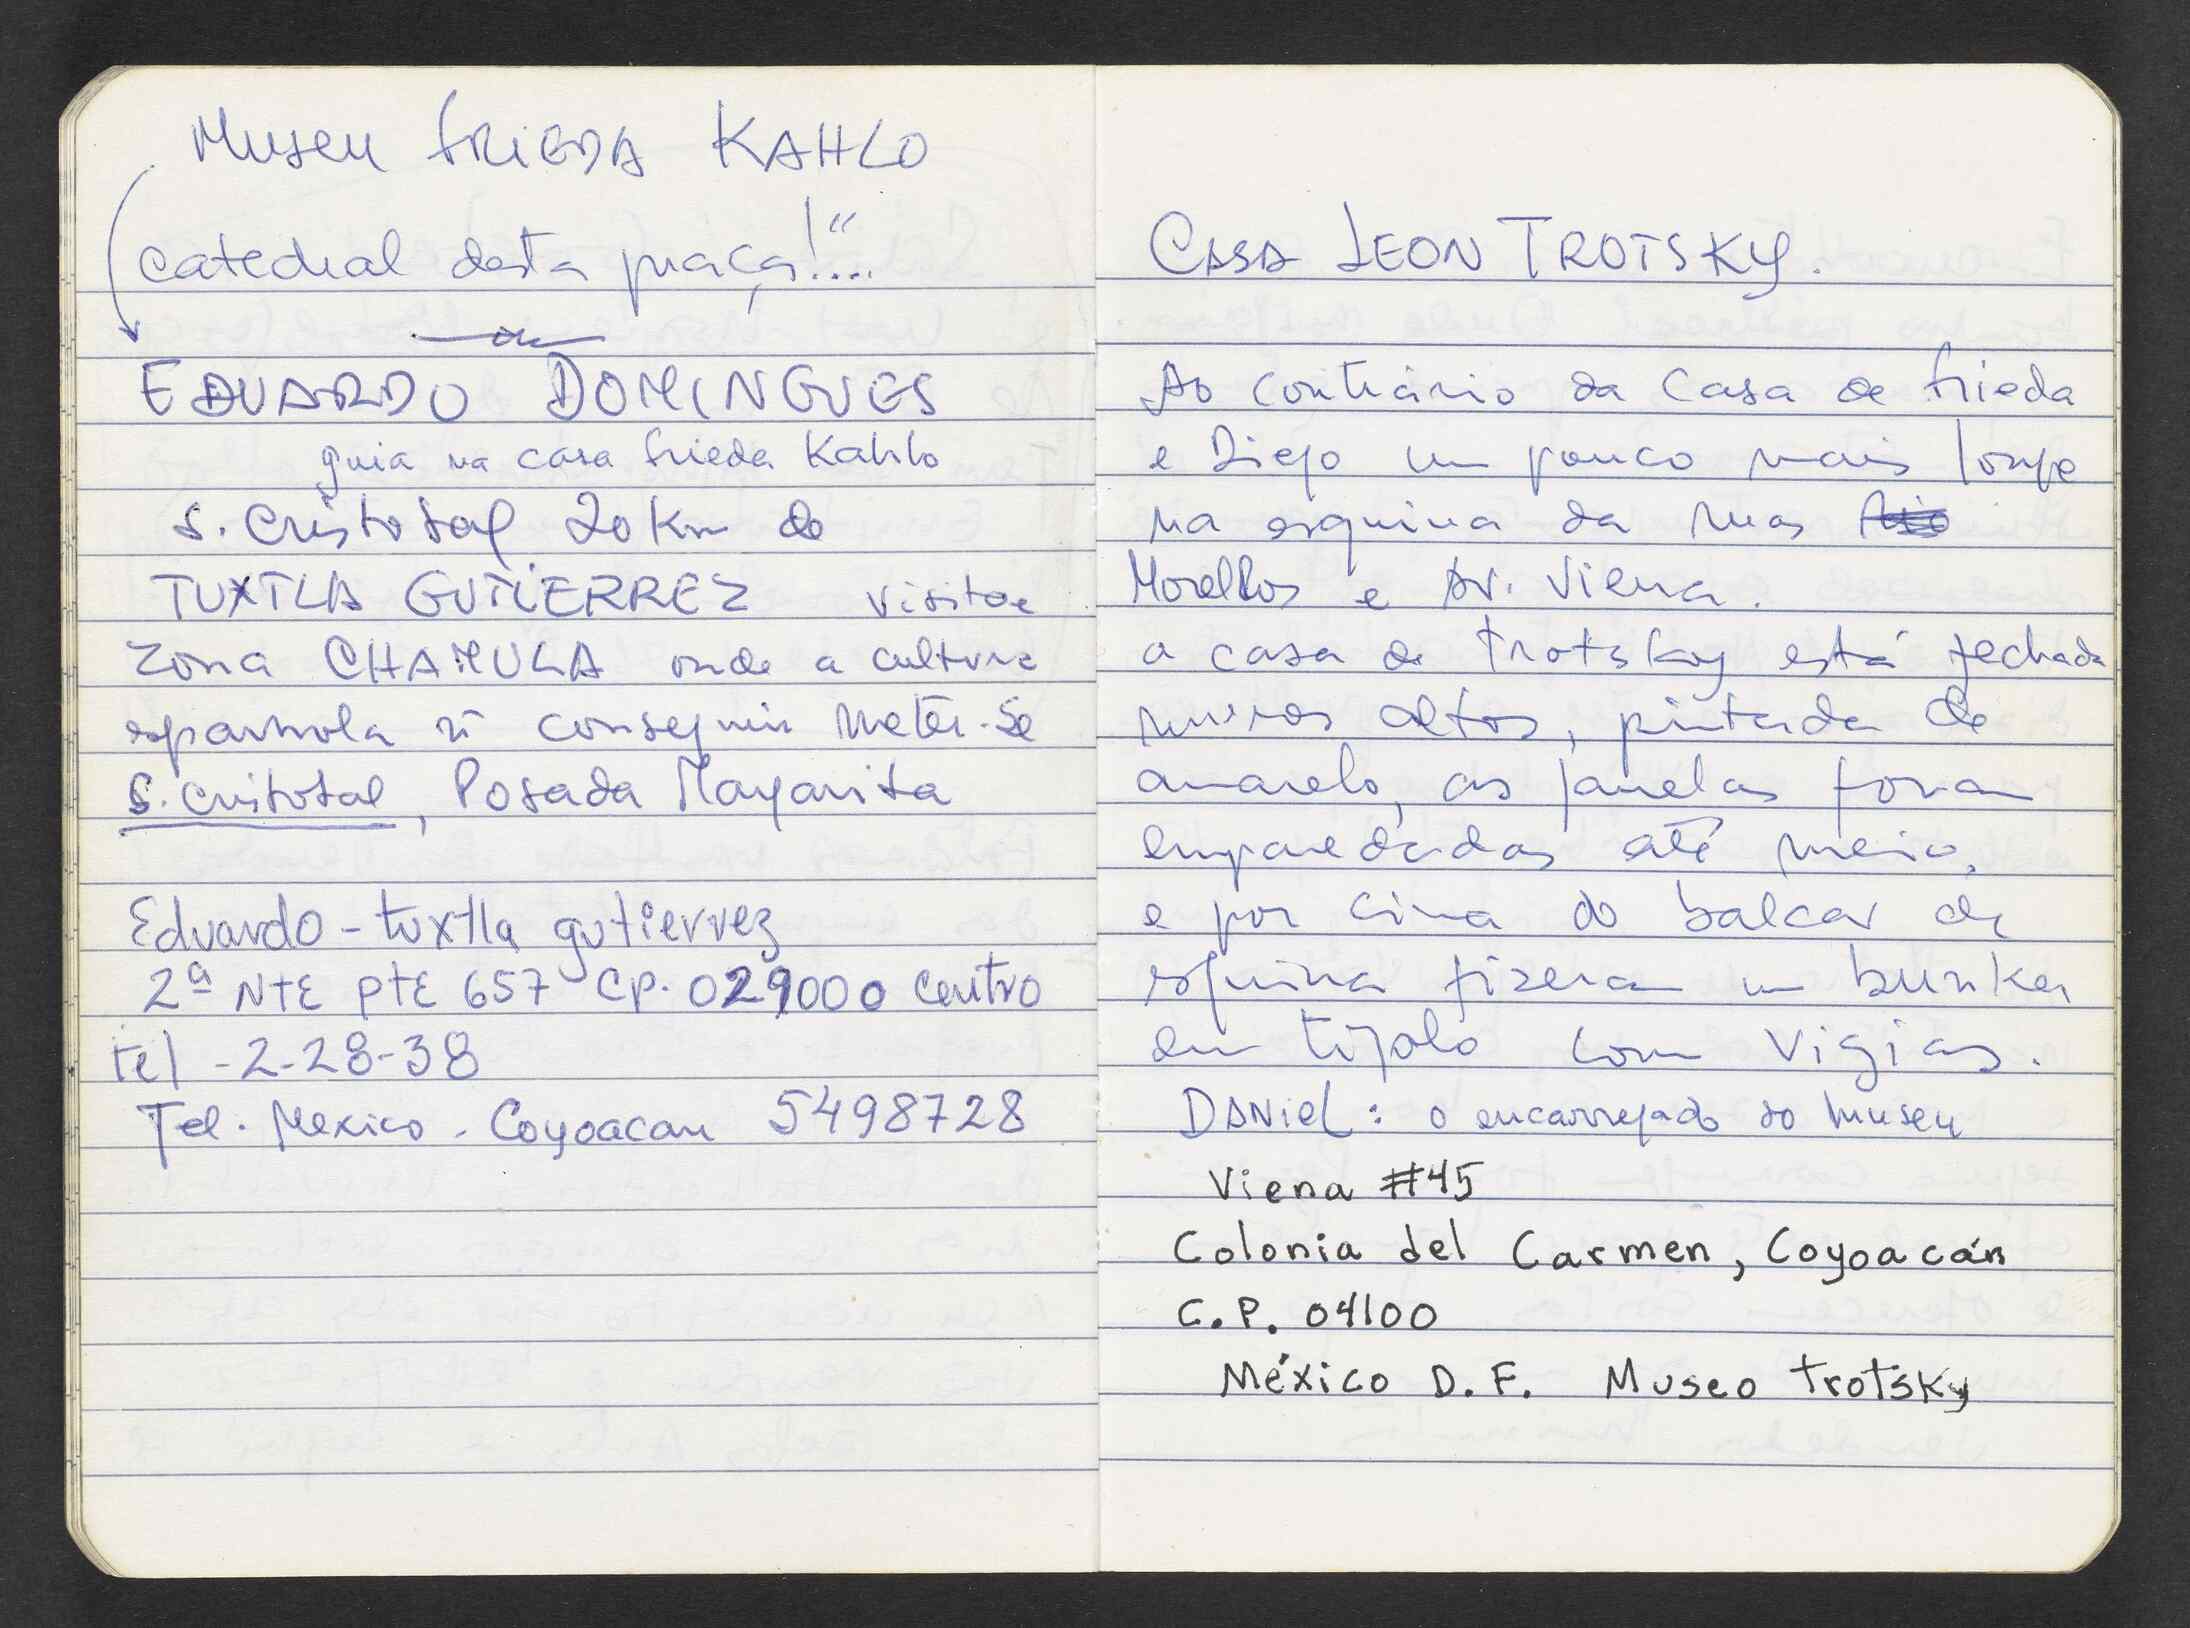 Museu Frieda KAHLO
catedral desta praça!"...
EDUARDO DOMINGUES
guia na casa Frieda Kahlo
S. Cristobal 20 Km de
TUXTLA GUTIERREZ visitar
zona CHAMULA onde a cultura
espanhola ñ conseguiu meter-se
S. Cristobal, Posada Margarita
Eduardo - tuxtla gutierrez
2ª NTE PTE 657 CP. 029000 Centro
tel - 2-28-38
Tel. Mexico - Coyoacan 5498728
CASA LEON TROTSKY.
Ao contrário da casa de Frieda
e Diego um pouco mais longe
na esquina da ruas
Morellos e Av. Viena.
a casa de Trotsky está fechada
muros altos, pintada de
amarelo, as janelas foram
emparedadas até meio,
e por cima do balcar de
esquina fizeram um bunker
em tijolo com vigias.
DANIEL: o encarregado do museu
Viena #45
Colonia del Carmen, Coyoacán
C.P. 04100
México D.F. Museo Trotsky